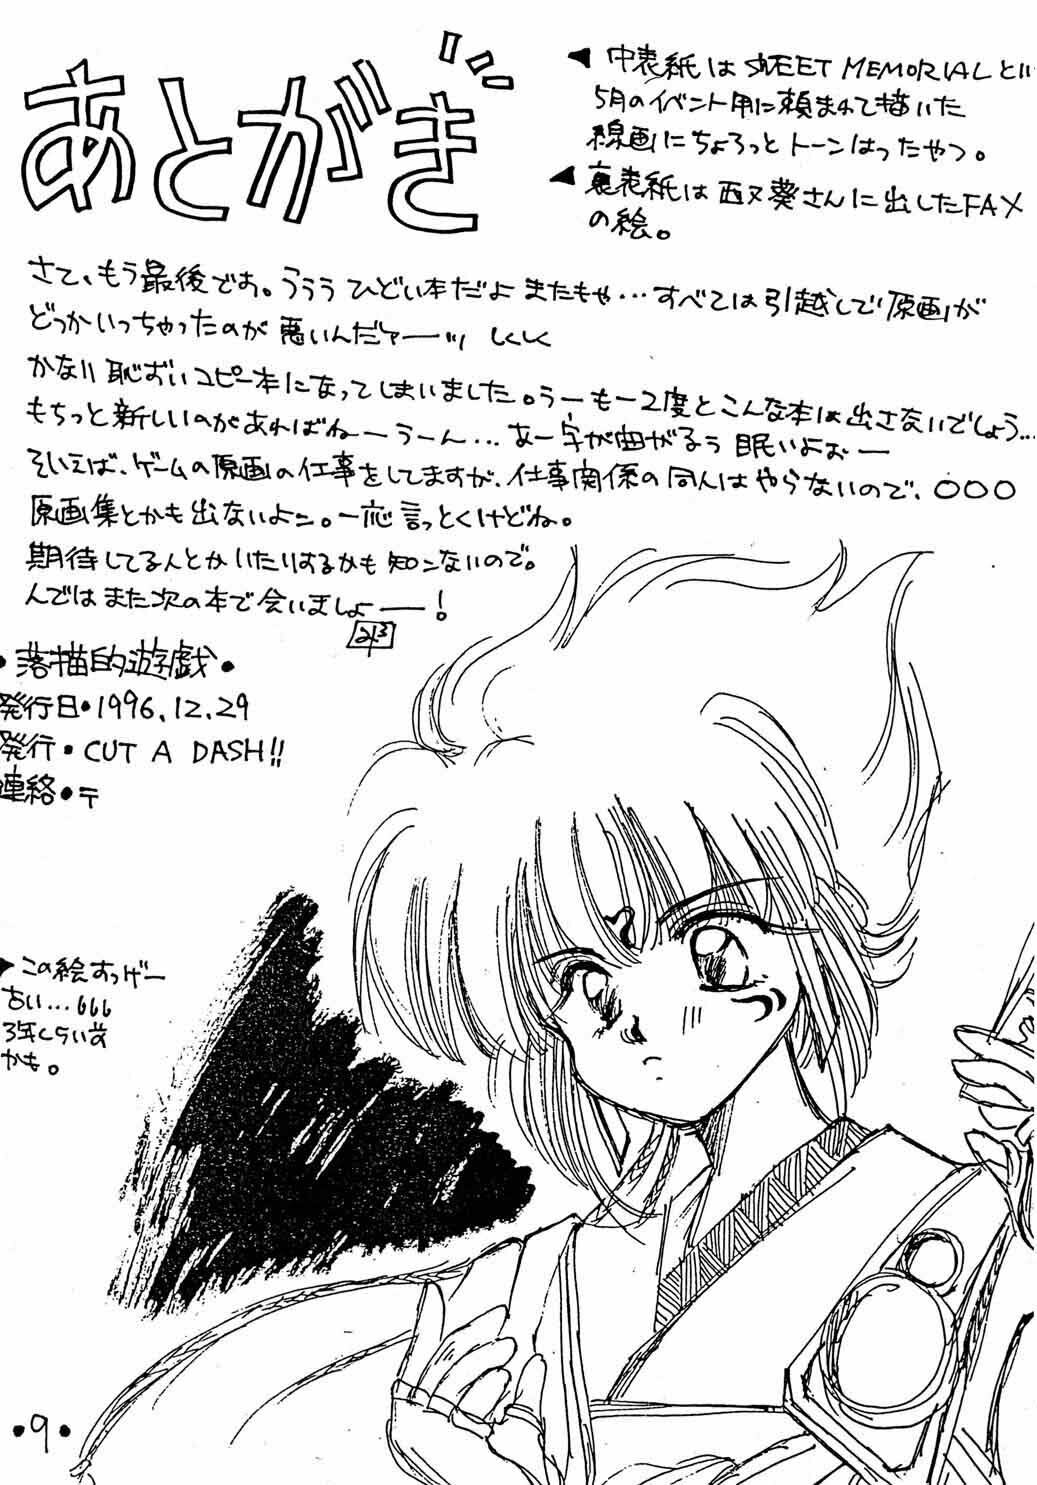 あとがき
◀ 中表紙は SWEET MEMORIAL とい
5月のイベント用に頼まれて描いた
線画にちょろっとトーンはったやつ。
◀ 裏表紙は西又葵さんに出したFAX
の絵。
さて、もう最後です。ううう ひどい本だよ またもや…すべては引越しで原画が
どっかいっちゃったのが 悪いんだァーッ しくしく
かなり恥ずいコピー本になってしまいました。うーもー2度とこんな本は出さないでしょう…
もちっと新しいのがあればねーうーん…あー字が曲がるぅ 眠いよぉー
そいえば、ゲームの原画の仕事をしてますが、仕事関係の同人はやらないので、○○○
原画集とかも出ないよン。一応言っとくけどね。
期待してる人とかいたりするかも知ンないので。
んではまた次の本で会いましょーー!
・落描的遊戯・
発行日・1996.12.29
発行・CUT A DASH!!
連絡・〒
▶この絵すっげー
古い…666
3年くらい前
かも。
・9・